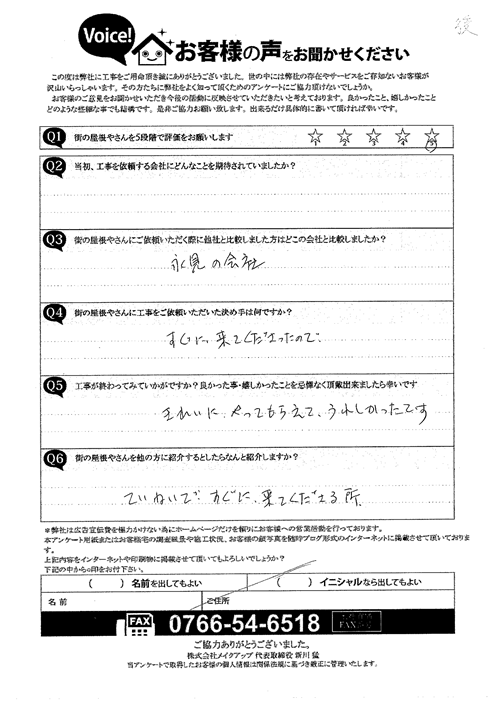 後
Voice!
お客様の声をお聞かせください
この度は弊社に工事をご用命頂き誠にありがとうございました。世の中には弊社の存在やサービスをご存知ないお客様が
沢山いらっしゃいます。その方たちに弊社をよく知って頂くためのアンケートにご協力頂けないでしょうか。
お客様のご意見をお聞かせいただき今後の活動に反映させていただきたいと考えております。良かったこと、嬉しかったこと
どのような些細な事でも結構です。是非ご協力お願い致します。出来るだけ具体的に書いて頂ければ幸いです。
Q1 街の屋根やさんを5段階で評価をお願いします
1 2 3 4 5
Q2 当初、工事を依頼する会社にどんなことを期待されていましたか?
Q3 街の屋根やさんにご依頼いただく際に他社と比較しました方はどこの会社と比較しましたか?
氷見の会社
Q4 街の屋根やさんに工事をご依頼いただいた決め手は何ですか?
すぐに来てくださったので
Q5 工事が終わってみていかがですか?良かった事・嬉しかったことを忌憚なく頂戴出来ましたら幸いです
きれいに、やってもらえて、うれしかったです
Q6 街の屋根やさんを他の方に紹介するとしたらなんと紹介しますか?
ていねいで すぐに、来てくださる所
※弊社は広告宣伝費を極力かけない為にホームページだけを頼りにお客様への営業活動を行っております。
本アンケート用紙またはお客様宅の調査風景や施工状況、お客様の顔写真を随時ブログ形式のインターネットに掲載させて頂いております。
上記内容をインターネットや印刷物に掲載させて頂いてもよろしいでしょうか?
下記の中から○印をお付け下さい。
( ) 名前を出してもよい ( ) イニシャルなら出してもよい
名前 ご住所
FAX 0766-54-6518
ご協力ありがとうございました。
株式会社メイクアップ 代表取締役 新川 猛
当アンケートで取得したお客様の個人情報は関係法規に基づき厳正に管理いたします。